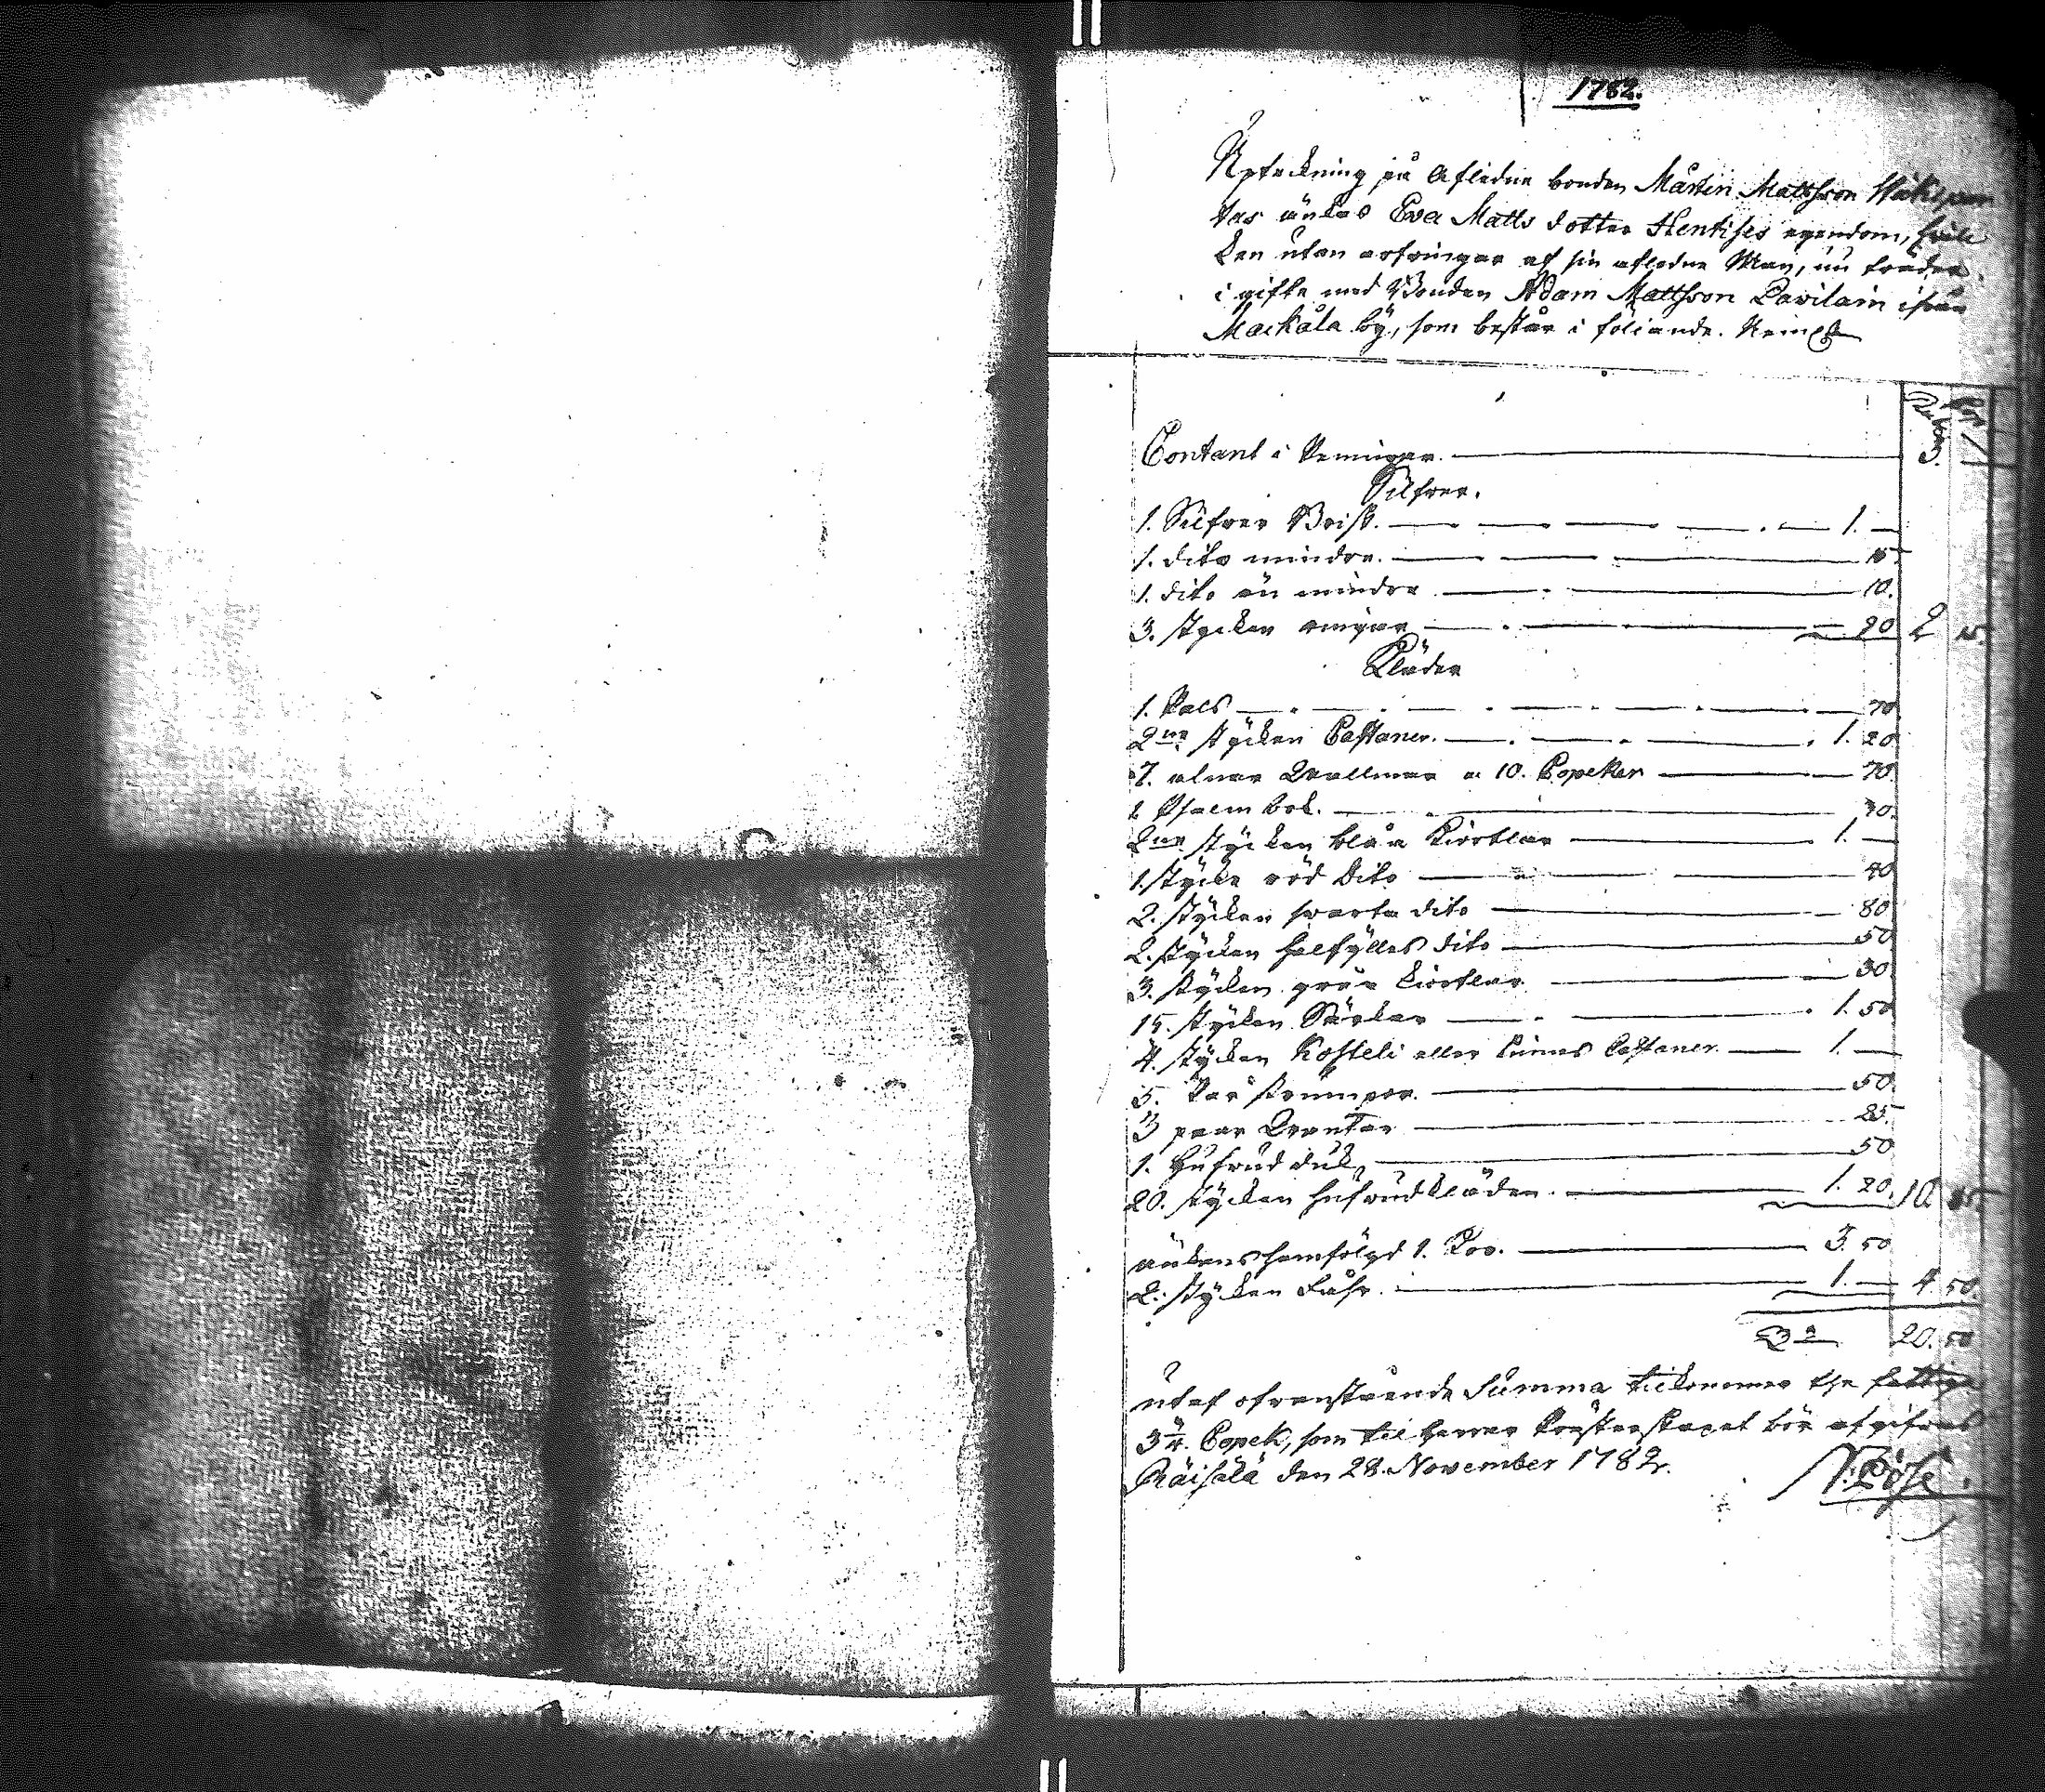 1782.
Upteckning på Afledne bonden Mårten Mattsson
tas änkas Eva Matts dotter Hentises egendom, hvil
ken utan arfvingar af sin afledne Man, nu träder
i gifte med Bonden Adam Mattsson Pavilain ifrån
Mackala by, som består i följande. Neml.
Rubl. Cop.
Contant i Penningar. 3. —
Silfver.
1. Silfver Brisk. 1. —
1. dito mindre. 15.
1. dito än mindre 10.
3. stycken ringar 20 2 15.
Kläder
1. Pals 70
2ne stycken Caftaner. 1. 20
7. alnar Wallmar a 10. Copeker 70.
1 Psalm bok. 30.
2ne stycken blåa Kiortlar 1. —
1. stycke röd dito 40
2. stycken swarta dito 80
2. stycken halfylles dito 50
3. stycken gråa kiortlar 30
15. stycken Särkar 1. 50
4. stycken Kosteli eller Linnes Caftaner. 1. —
5. Par strumpor. 50.
3 paar Wantar 25.
1. Hufvud duk 50
20. stycken hufvudkläden. 1. 20. 10. 85.
änkans hemfölgd 1. Ko. 3. 50
2. stycken Fåhr. 1. — 4. 50.
Sa 20. 50
utaf ofvanstående Summa tilkommer the fattige
3 1/4. Copek, som til herrar Prästerskapet bör afgifvas
Räisälä den 28. November 1782.